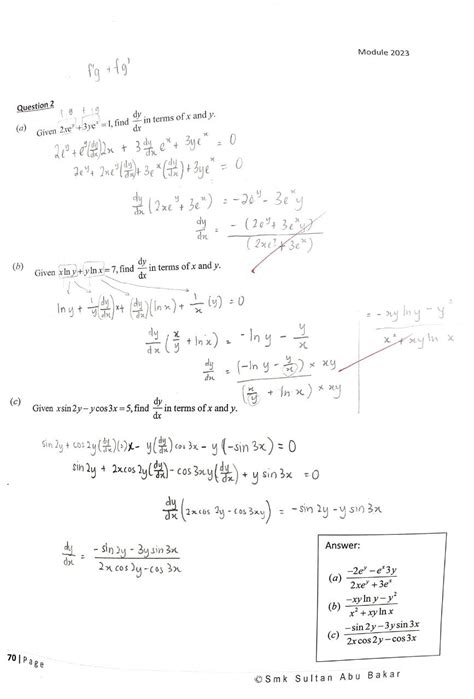 Module 2023
f'g + fg'
Question 2
f g + f g
(a) Given 2xe^y + 3ye^x = 1, find dy/dx in terms of x and y.
2e^y + e^y(dy/dx)2x + 3 dy/dx e^x + 3ye^x = 0
2e^y + 2xe^y(dy/dx) + 3e^x(dy/dx) + 3ye^x = 0
dy/dx (2xe^y + 3e^x) = -2e^y - 3e^x y
dy/dx = -(2e^y + 3e^x y)/(2xe^y + 3e^x)
(b) Given x ln y + y ln x = 7, find dy/dx in terms of x and y.
ln y + 1/y(dy/dx)x + (dy/dx)(ln x) + 1/x (y) = 0
dy/dx (x/y + ln x) = -ln y - y/x
dy/dx = (-ln y - y/x) × xy/(x/y + ln x) × xy
= -xy ln y - y²/x² + xy ln x
(c) Given x sin 2y - y cos 3x = 5, find dy/dx in terms of x and y.
sin 2y + cos 2y(dy/dx)(2)x - y(dy/dx) cos 3x - y(-sin 3x) = 0
sin 2y + 2x cos 2y(dy/dx) - cos 3xy(dy/dx) + y sin 3x = 0
dy/dx (2x cos 2y - cos 3xy) = -sin 2y - y sin 3x
dy/dx = -sin 2y - 3y sin 3x/2x cos 2y - cos 3x
Answer:
(a) -2e^y - e^x 3y/2xe^y + 3e^x
(b) -xy ln y - y²/x² + xy ln x
(c) -sin 2y - 3y sin 3x/2x cos 2y - cos 3x
70 | Page
©Smk Sultan Abu Bakar